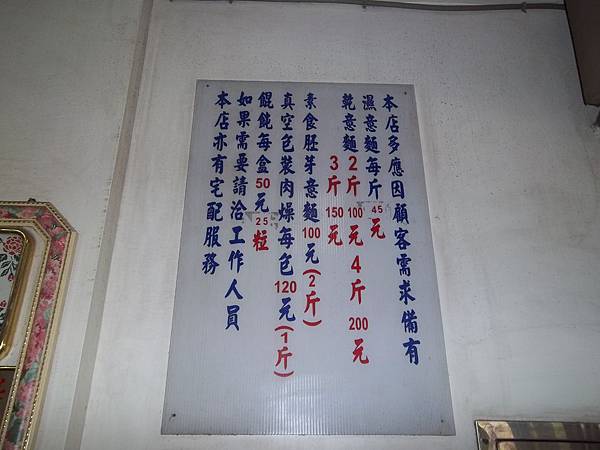 本店多應因顧客需求備有
濕意麵每斤45元
乾意麵2斤100元4斤200元
3斤150元
素食胚芽意麵100元(2斤)
真空包裝肉燥每包120元(1斤)
餛飩每盒50元25粒
如果需要請洽工作人員
本店亦有宅配服務